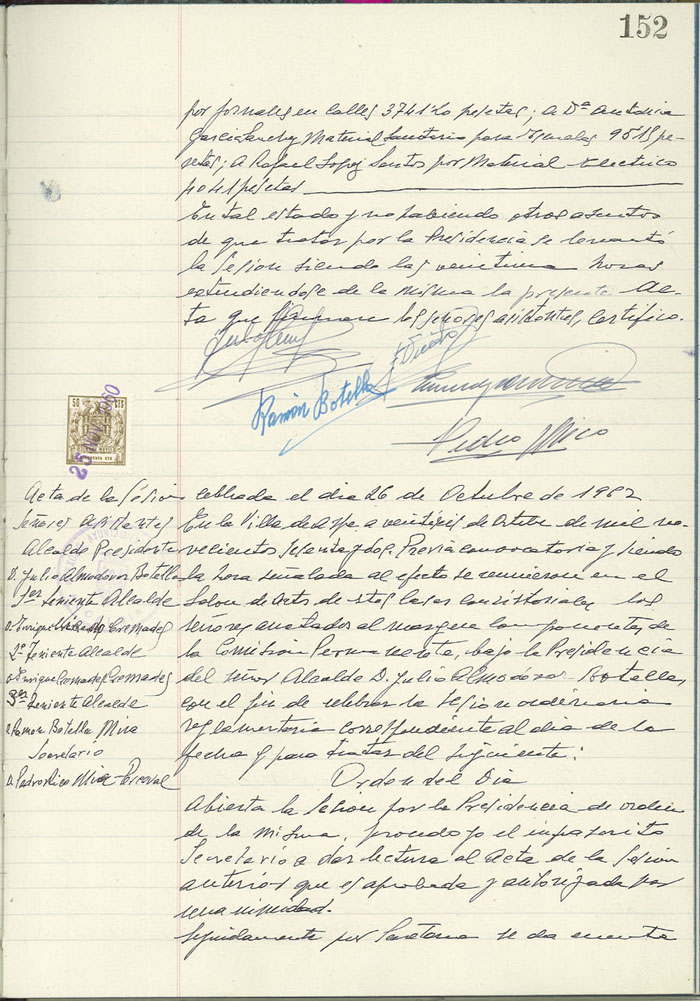 152
por jornales en calles 3741'20 pesetas; a Dª Antonia
Garcia Sanchez Material Sanitario para Escuelas 95'15 pe-
setas; A Rafael Lopez Santos por Material Electrico
4041 pesetas
En tal estado y no habiendo otros asuntos
de que tratar por la Presidencia se levantó
la Sesion siendo las veintiuna horas
extendiendose de la misma la presente Ac-
ta que firman los señores asistentes, certifico.
Ramón Botella
Pedro Mico
50 CTS
25 NOV 1960
Acta de la Sesion celebrada el dia 26 de Octubre de 1962
Señores Asistentes
Alcalde Presidente
D. Julio Almodovar Botella
1er Teniente Alcalde
D. Enrique Cremades
2º Teniente Alcalde
D. Enrique Cremades Cremades
3er Teniente Alcalde
D. Ramon Botella Mira
Secretario
D. Pedro Mico
En la Villa de Aspe a veintiseis de Octubre de mil no-
vecientos sesenta y dos. Previa convocatoria y siendo
la hora señalada al efecto se reunieron en el
Salon de Actos de estas Casas Consistoriales los
señores anotados al margen componentes de
la Comisión Permanente, bajo la Presidencia
del señor Alcalde D. Julio Almodóvar Botella,
con el fin de celebrar la sesion ordinaria
reglamentaria correspondiente al dia de la
fecha y para tratar del siguiente:
Orden del Dia
Abierta la Sesion por la Presidencia de orden
de la misma, produjo el infrascrito
Secretario a dar lectura al Acta de la Sesion
anterior que es aprobada y autorizada por
unanimidad.
Seguidamente por Secretaria se da cuenta